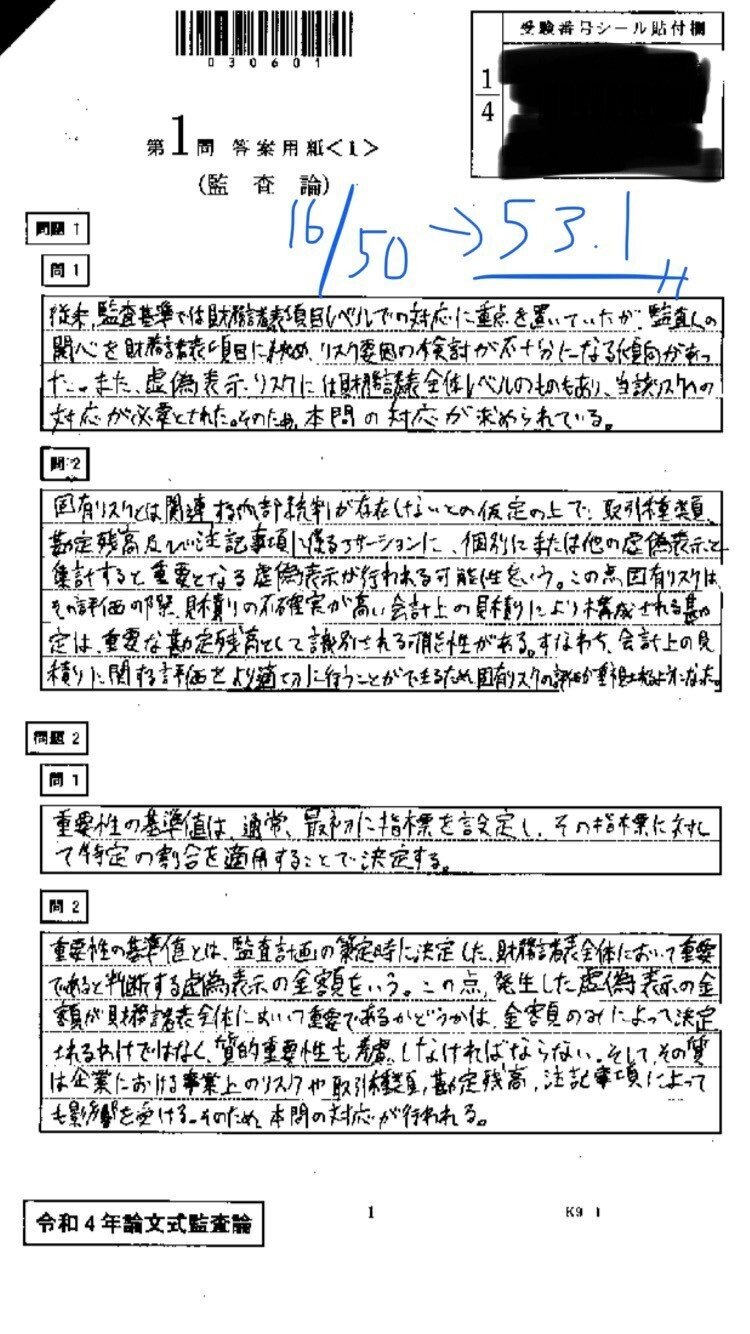 030601
受験番号シール貼付欄
1
4
第1問 答案用紙<1>
(監査論)
16/50→53.1
問題1
問1
従来、監査基準では財務諸表項目レベルでの対応に重点を置いていたが、監査人の
関心を財務諸表項目に狭め、リスク要因の検討が不十分になる傾向があっ
た。また、虚偽表示リスクには財務諸表全体レベルのものもあり、当該リスクへの
対応が必要とされた。そのため、本問の対応が求められている。
問2
固有リスクとは関連する内部統制が存在しないとの仮定の上で、取引種類、
勘定残高及び注記事項に係るアサーションに、個別にまたは他の虚偽表示と
集計すると重要となる虚偽表示が行われる可能性をいう。この点、固有リスクは
その評価の際、見積りの不確実が高い会計上の見積りにより構成される勘
定は、重要な勘定残高として識別される可能性がある。すなわち、会計上の見
積りに関する評価をより適切に行うことができるため固有リスクの評価が重視されるようになった。
問題2
問1
重要性の基準値は、通常、最初に指標を設定し、その指標に対し
て特定の割合を適用することで決定する。
問2
重要性の基準値とは、監査計画の策定時に決定した、財務諸表全体において重要
であると判断する虚偽表示の金額をいう。この点、発生した虚偽表示の金
額が財務諸表全体において重要であるかどうかは、金額のみによって決定
されるわけではなく、質的重要性も考慮しなければならない。そして、その質
は企業における事業上のリスクや取引種類、勘定残高、注記事項によって
も影響を受ける。そのため、本問の対応が行われる。
令和4年論文式監査論
1
K9 1